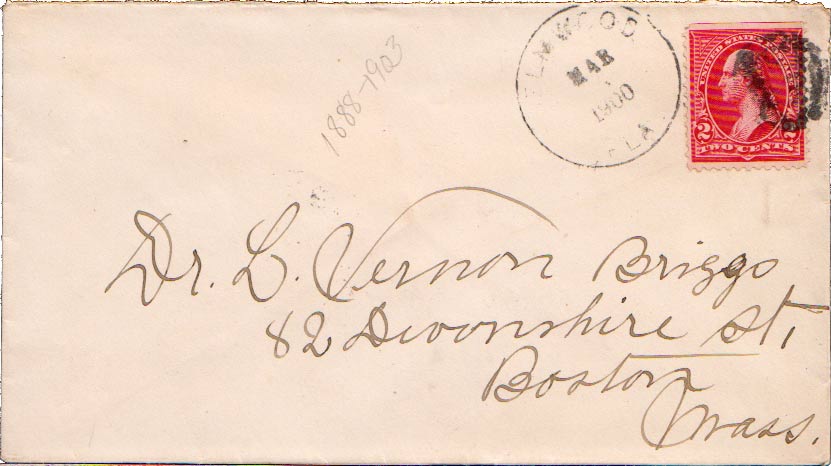 ELMWOOD
MAR
1900
FLA
1888-1903
UNITED STATES
2 2
TWO CENTS
Dr. L. Vernon Briggs
82 Devonshire St,
Boston
Mass.